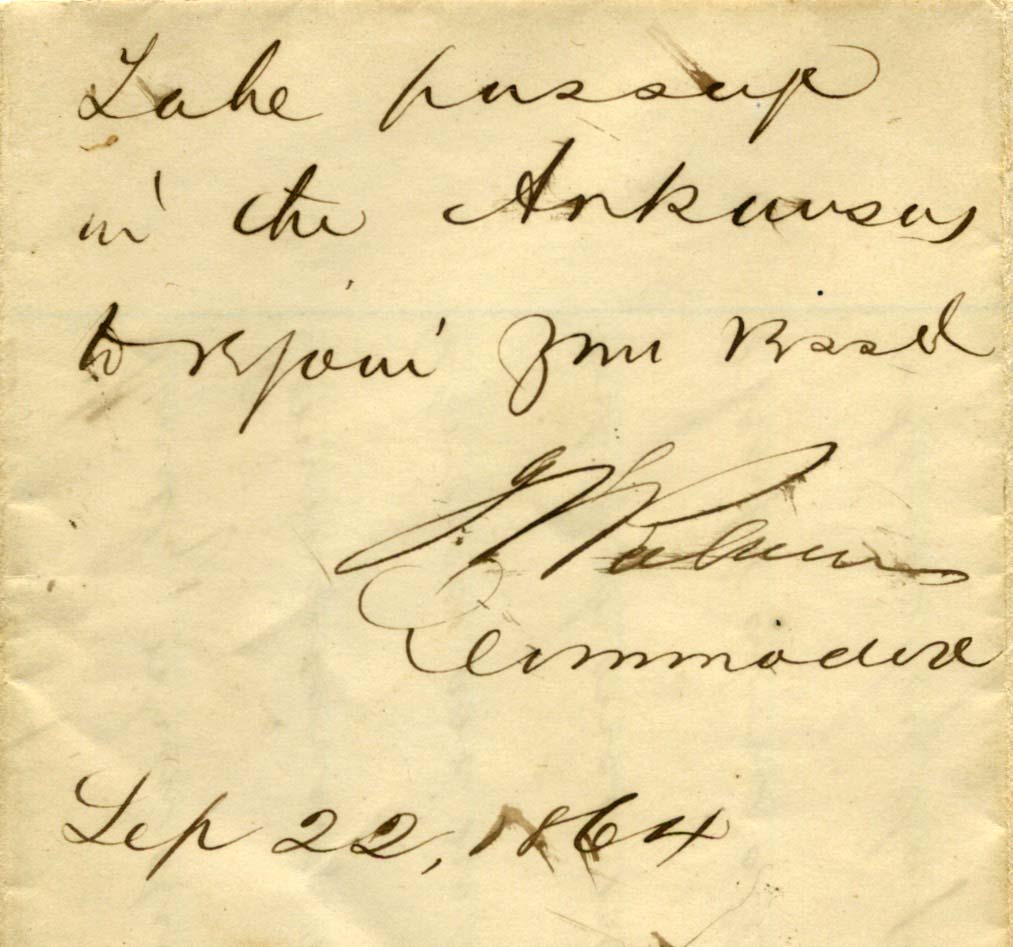 Take passage
in the Arkansas
to rejoin your vessel
J. S. Palmer
Commodore
Sep 22, 1864